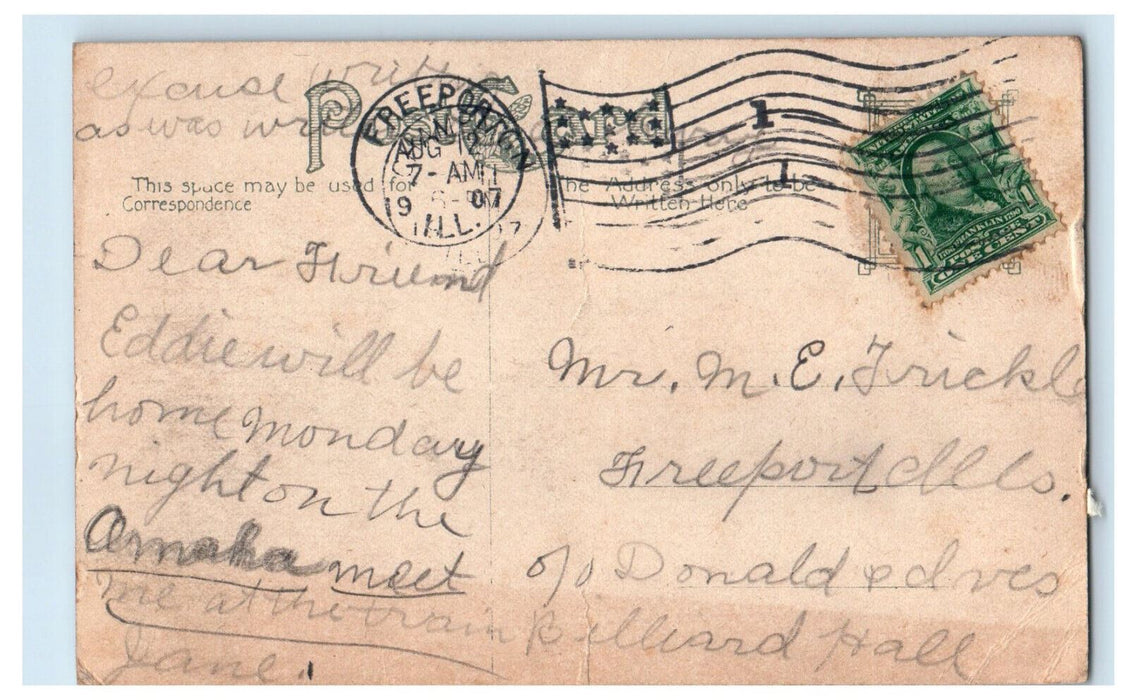 excuse writ
as was wri
Post Card
FREEPORT
AUG 12
7-AM
1907
ILL.
1
1
This space may be used for
Correspondence
The Address only to be
Written Here
FRANKLIN
1 ONE CENT 1
Dear Friend
Eddie will be
home Monday
night on the
Omaha meet
me at the train
Jane.
Mr. M. E. Frickle
Freeport Ills.
c/o Donald & Ives
Billiard Hall